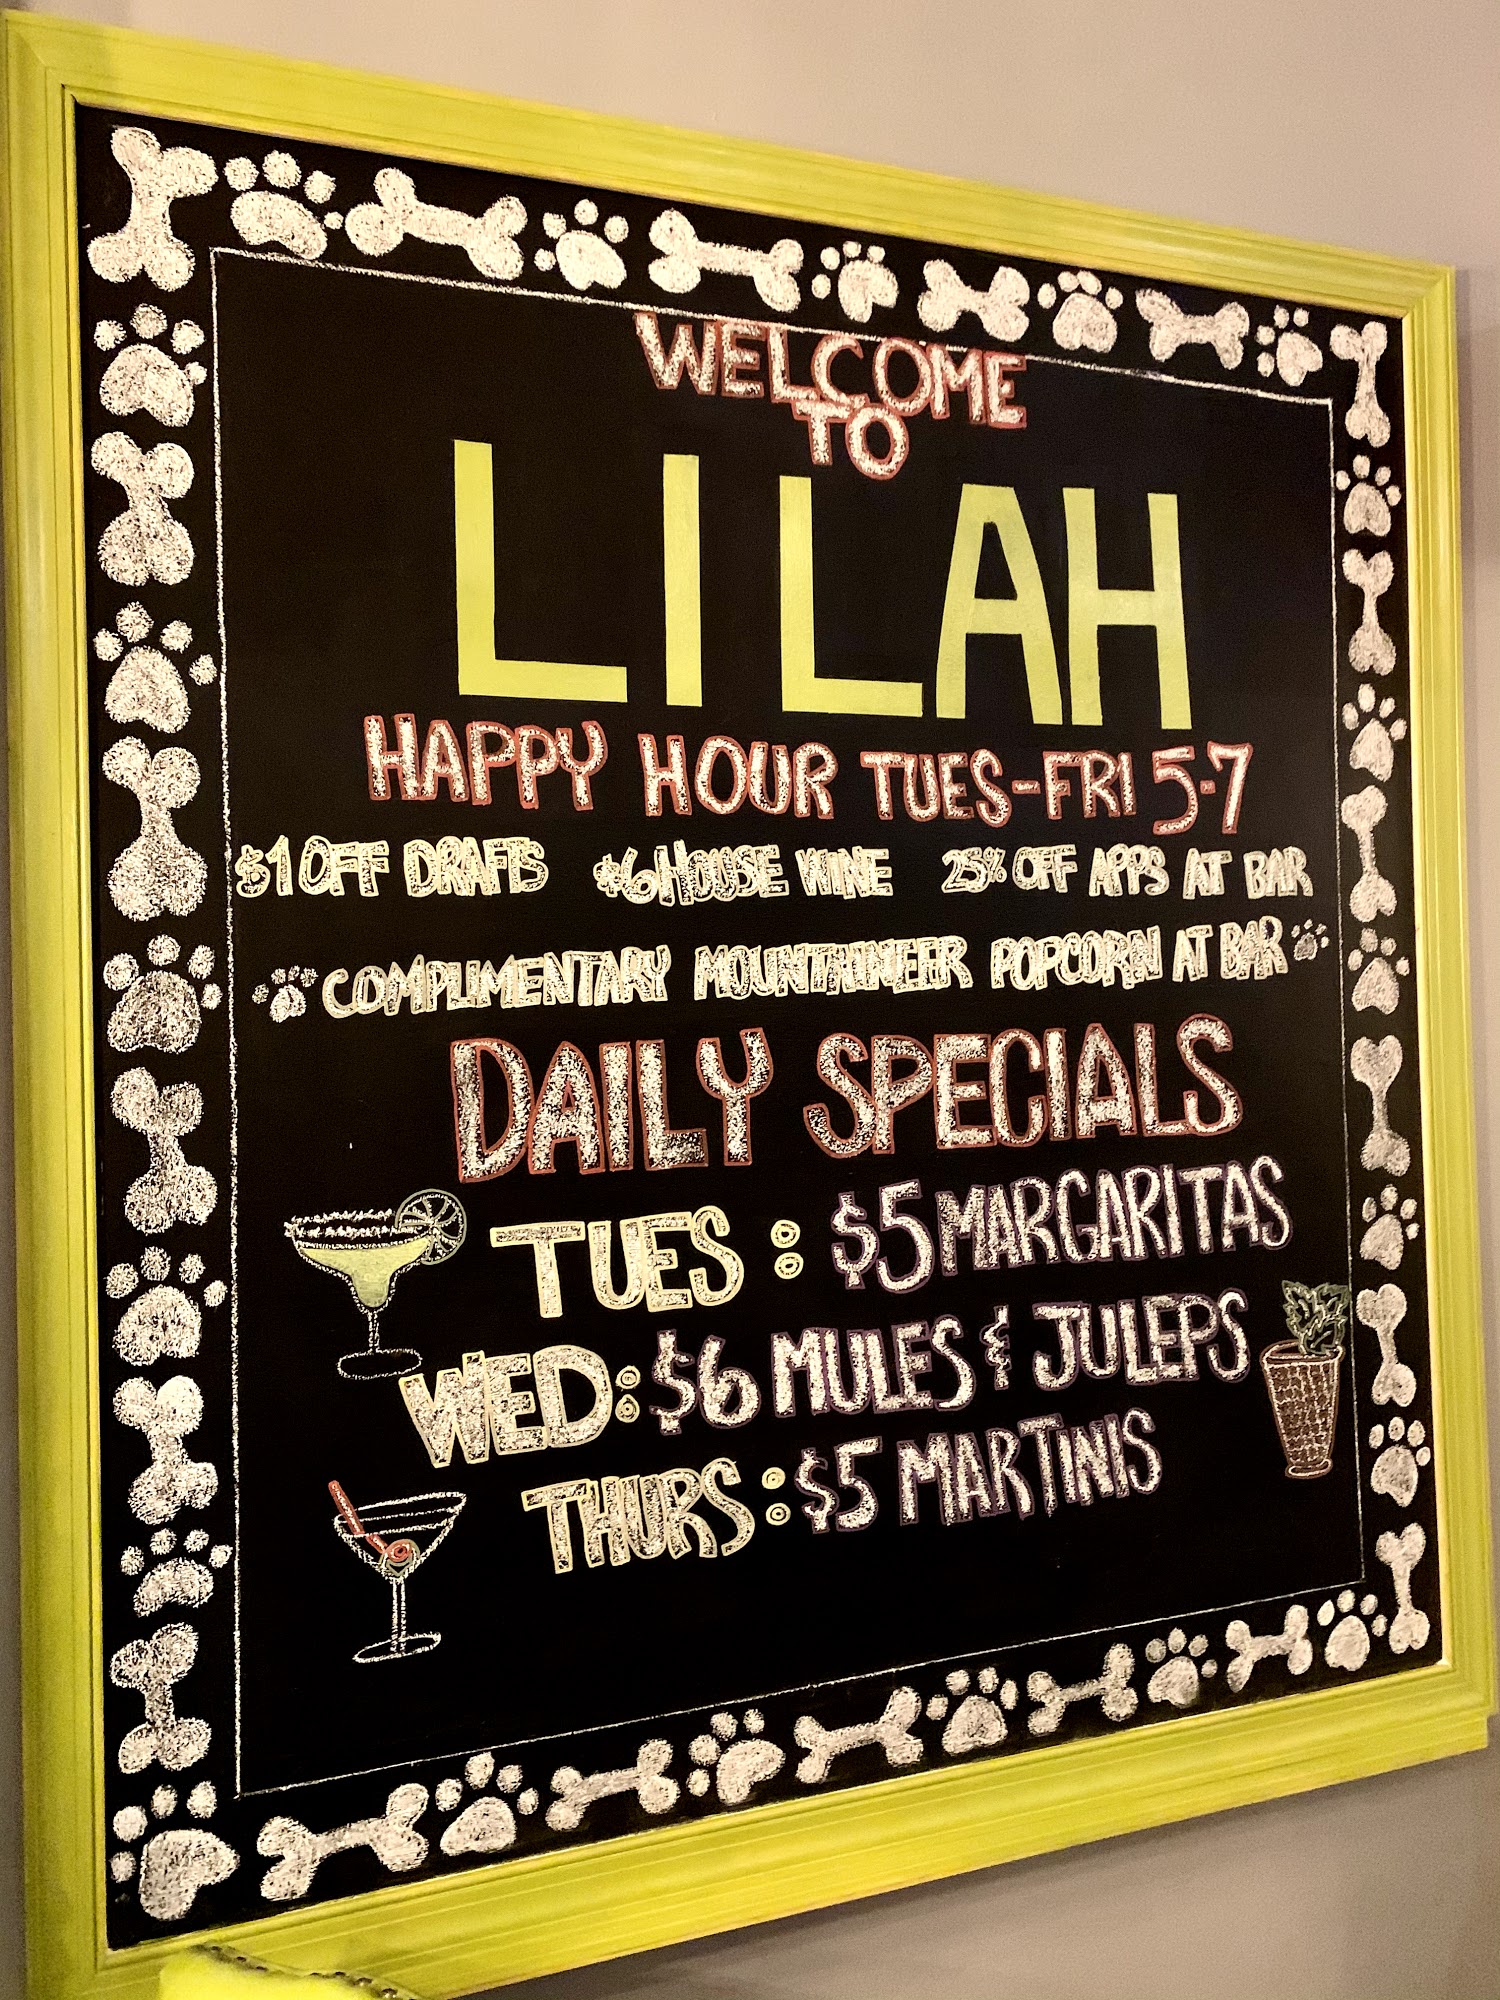 WELCOME
TO
LILAH
HAPPY HOUR TUES-FRI 5-7
$1 OFF DRAFTS $6 HOUSE WINE 25% OFF APPS AT BAR
COMPLIMENTARY MOUNTAINEER POPCORN AT BAR
DAILY SPECIALS
TUES : $5 MARGARITAS
WED: $6 MULES & JULEPS
THURS : $5 MARTINIS